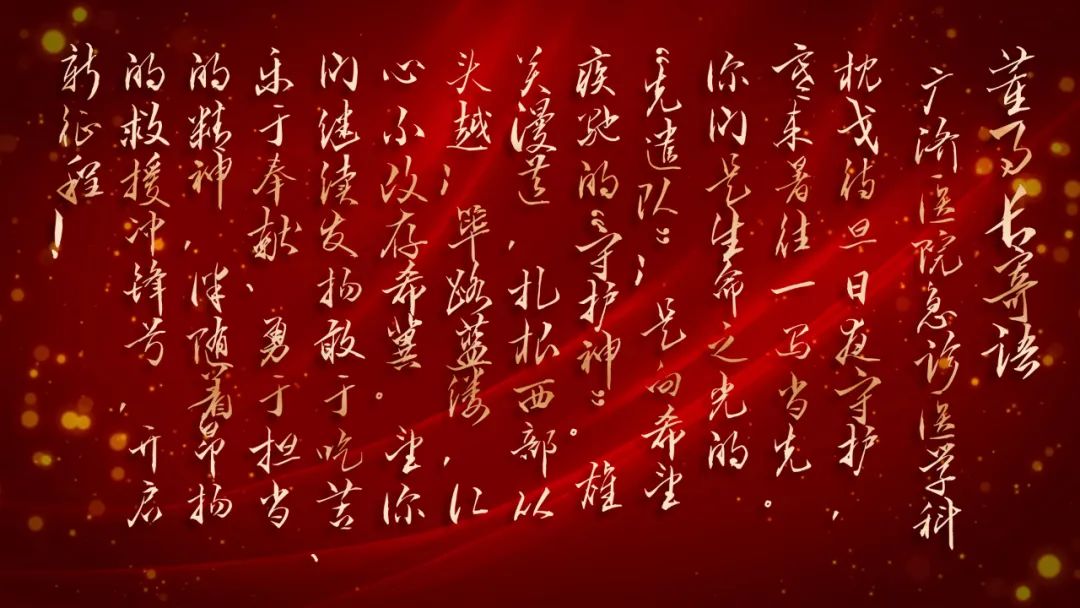 董事长寄语
广济医院急诊医学科
枕戈待旦日夜守护，
寒来暑往一马当先。
你们是生命之光的
“先遣队”；是向希望
疾驰的“守护神”。雄
关漫道，扎根西部以
头越；筚路蓝缕，仁
心不改存希冀。望你
们继续发扬敢于吃苦、
乐于奉献、勇于担当
的精神，伴随着昂扬
的救援冲锋号，开启
新征程！